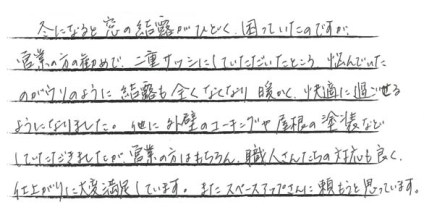 冬になると窓の結露がひどく、困っていたのですが、
営業の方の勧めで、二重サッシにしていただいたところ、悩んでいた
のがウソのように結露も全くなくなり、暖かく、快適に過ごせる
ようになりました。他に外壁のコーキングや屋根の塗装など
していただきましたが営業の方はもちろん、職人さんたちの対応も良く、
仕上がりに大変満足しています。またスペースアップさんに頼もうと思っています。